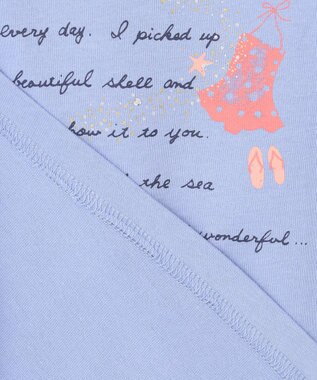 every day. I picked up
beautiful shell and
how it to you.
the sea
wonderful...